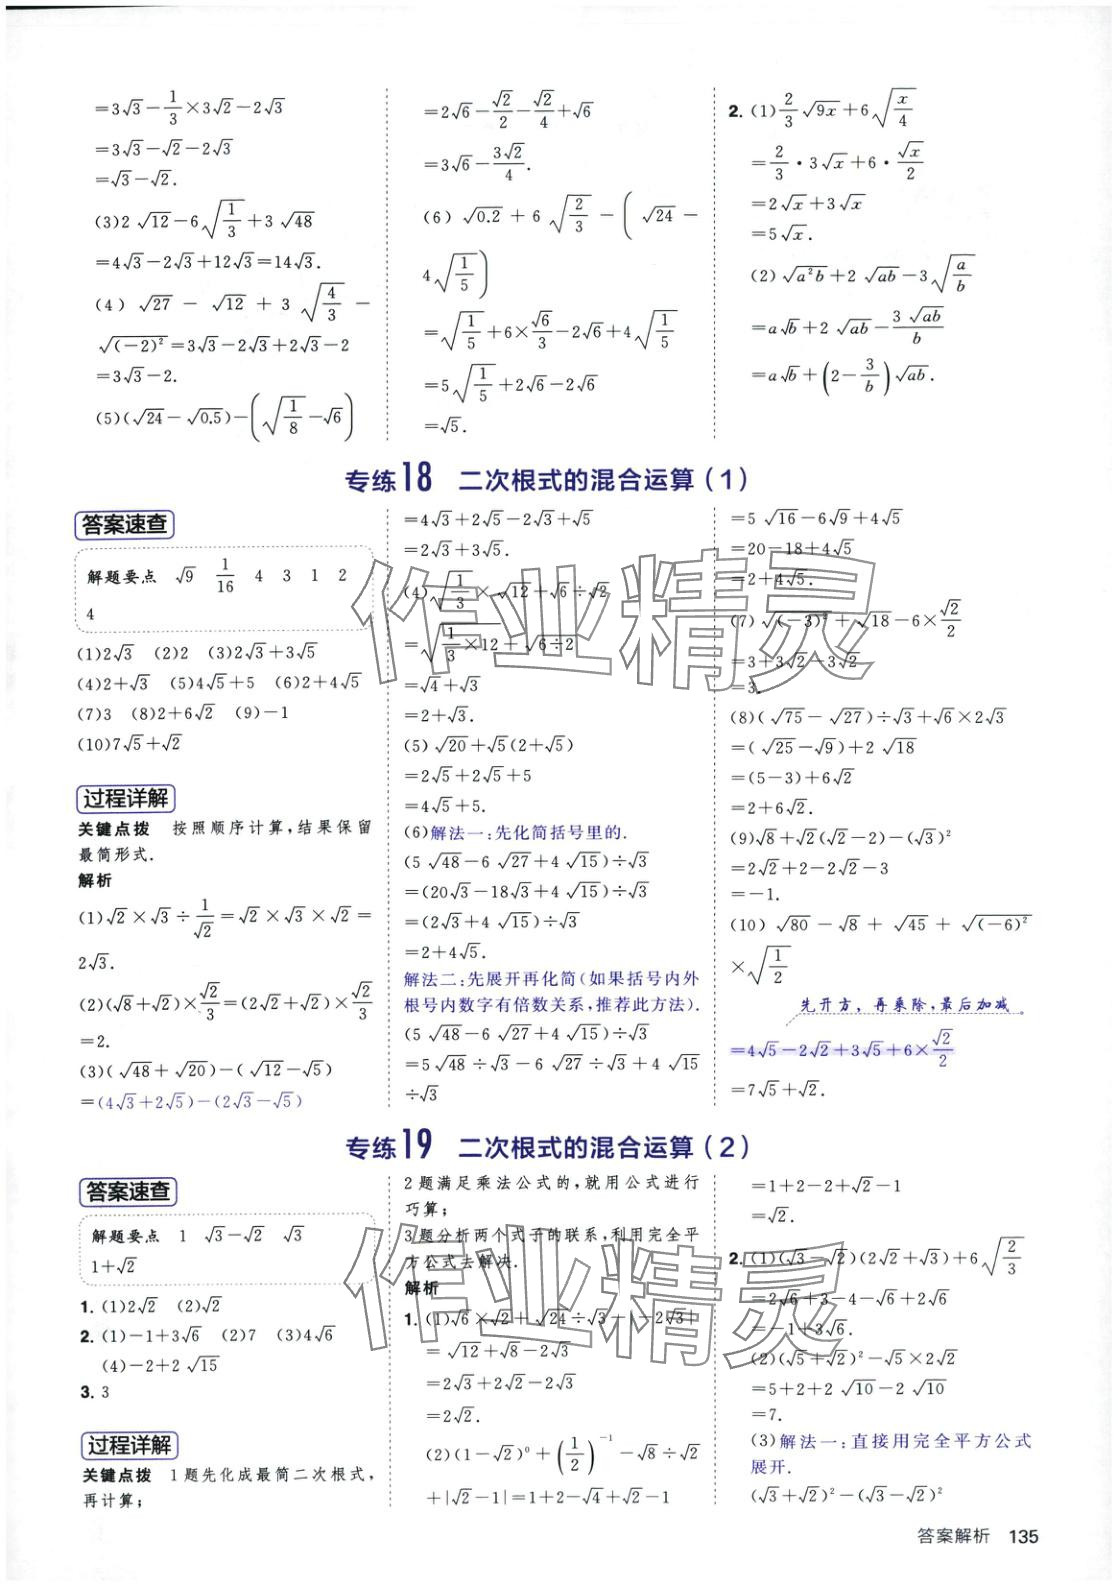 =3√3-1/3×3√2-2√3
=3√3-√2-2√3
=√3-√2.
(3)2√12-6√(1/3)+3√48
=4√3-2√3+12√3=14√3.
(4)√27-√12+3√(4/3)-
√(-2)²=3√3-2√3+2√3-2
=3√3-2.
(5)(√24-√0.5)-(√(1/8)-√6)
=2√6-√2/2-√2/4+√6
=3√6-3√2/4.
(6)√0.2+6√(2/3)-(√24-
4√(1/5))
=√(1/5)+6×√6/3-2√6+4√(1/5)
=5√(1/5)+2√6-2√6
=√5.
2.(1)2/3√9x+6√(x/4)
=2/3·3√x+6·√x/2
=2√x+3√x
=5√x.
(2)√a²b+2√ab-3√(a/b)
=a√b+2√ab-3√ab/b
=a√b+(2-3/b)√ab.
专练18 二次根式的混合运算(1)
答案速查
解题要点 √9 1/16 4 3 1 2
4
(1)2√3 (2)2 (3)2√3+3√5
(4)2+√3 (5)4√5+5 (6)2+4√5
(7)3 (8)2+6√2 (9)-1
(10)7√5+√2
过程详解
关键点拨 按照顺序计算,结果保留
最简形式.
解析
(1)√2×√3÷1/√2=√2×√3×√2=
2√3.
(2)(√8+√2)×√2/3=(2√2+√2)×√2/3
=2.
(3)(√48+√20)-(√12-√5)
=(4√3+2√5)-(2√3-√5)
=4√3+2√5-2√3+√5
=2√3+3√5.
(4)√(1/3)×√12+√6÷√2
=√(1/3×12)+√(6÷2)
=√4+√3
=2+√3.
(5)√20+√5(2+√5)
=2√5+2√5+5
=4√5+5.
(6)解法一:先化简括号里的.
(5√48-6√27+4√15)÷√3
=(20√3-18√3+4√15)÷√3
=(2√3+4√15)÷√3
=2+4√5.
解法二:先展开再化简(如果括号内外
根号内数字有倍数关系,推荐此方法).
(5√48-6√27+4√15)÷√3
=5√48÷√3-6√27÷√3+4√15
÷√3
=5√16-6√9+4√5
=20-18+4√5
=2+4√5.
(7)√(-3)²+√18-6×√2/2
=3+3√2-3√2
=3.
(8)(√75-√27)÷√3+√6×2√3
=(√25-√9)+2√18
=(5-3)+6√2
=2+6√2.
(9)√8+√2(√2-2)-(√3)²
=2√2+2-2√2-3
=-1.
(10)√80-√8+√45+√(-6)²
×√(1/2)
先开方,再乘除,最后加减。
=4√5-2√2+3√5+6×√2/2
=7√5+√2.
专练19 二次根式的混合运算(2)
答案速查
解题要点 1 √3-√2 √3
1+√2
1.(1)2√2 (2)√2
2.(1)-1+3√6 (2)7 (3)4√6
(4)-2+2√15
3.3
过程详解
关键点拨 1题先化成最简二次根式,
再计算;
2题满足乘法公式的,就用公式进行
巧算;
3题分析两个式子的联系,利用完全平
方公式去解决.
解析
1.(1)√6×√2+√24÷√3-|-2√3|
=√12+√8-2√3
=2√3+2√2-2√3
=2√2.
(2)(1-√2)⁰+(1/2)⁻¹-√8÷√2
+|√2-1|=1+2-√4+√2-1
=1+2-2+√2-1
=√2.
2.(1)(√3-√2)(2√2+√3)+6√(2/3)
=2√6+3-4-√6+2√6
=-1+3√6.
(2)(√5+√2)²-√5×2√2
=5+2+2√10-2√10
=7.
(3)解法一:直接用完全平方公式
展开.
(√3+√2)²-(√3-√2)²
答案解析 135
作业精灵
作业精灵